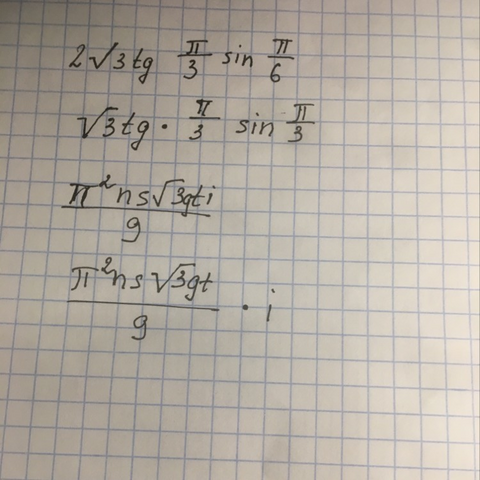 2√3tg π/3 sin π/6
√3tg · π/3 sin π/3
π²ns√3gti/9
π²ns√3gt/9 · i